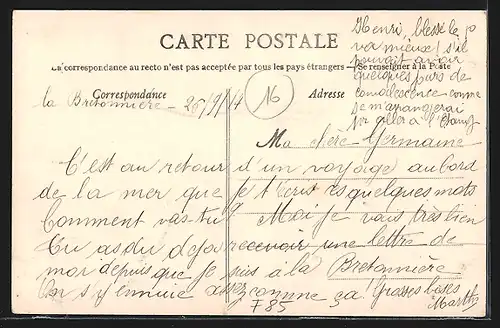 CARTE POSTALE
La correspondance au recto n'est pas acceptée par tous les pays étrangers — (Se renseigner à la Poste)
Correspondance
Adresse
Henri, blessé le
va mieux s'il
pouvait avoir
quelques jours de
convalescence comme
je m'arrangerai
pr aller à l'
la Bretonnière - 26/9/14
N
Ma chère Germaine
C'est au retour d'un voyage au bord
de la mer que je t'écris ces quelques mots
Comment vas-tu? Moi je vais très bien
Tu as du deja recevoir une lettre de
moi depuis que je suis à la Bretonnière
On s'y ennuie assez comme ça! Grosses bises
Marthe
F 85